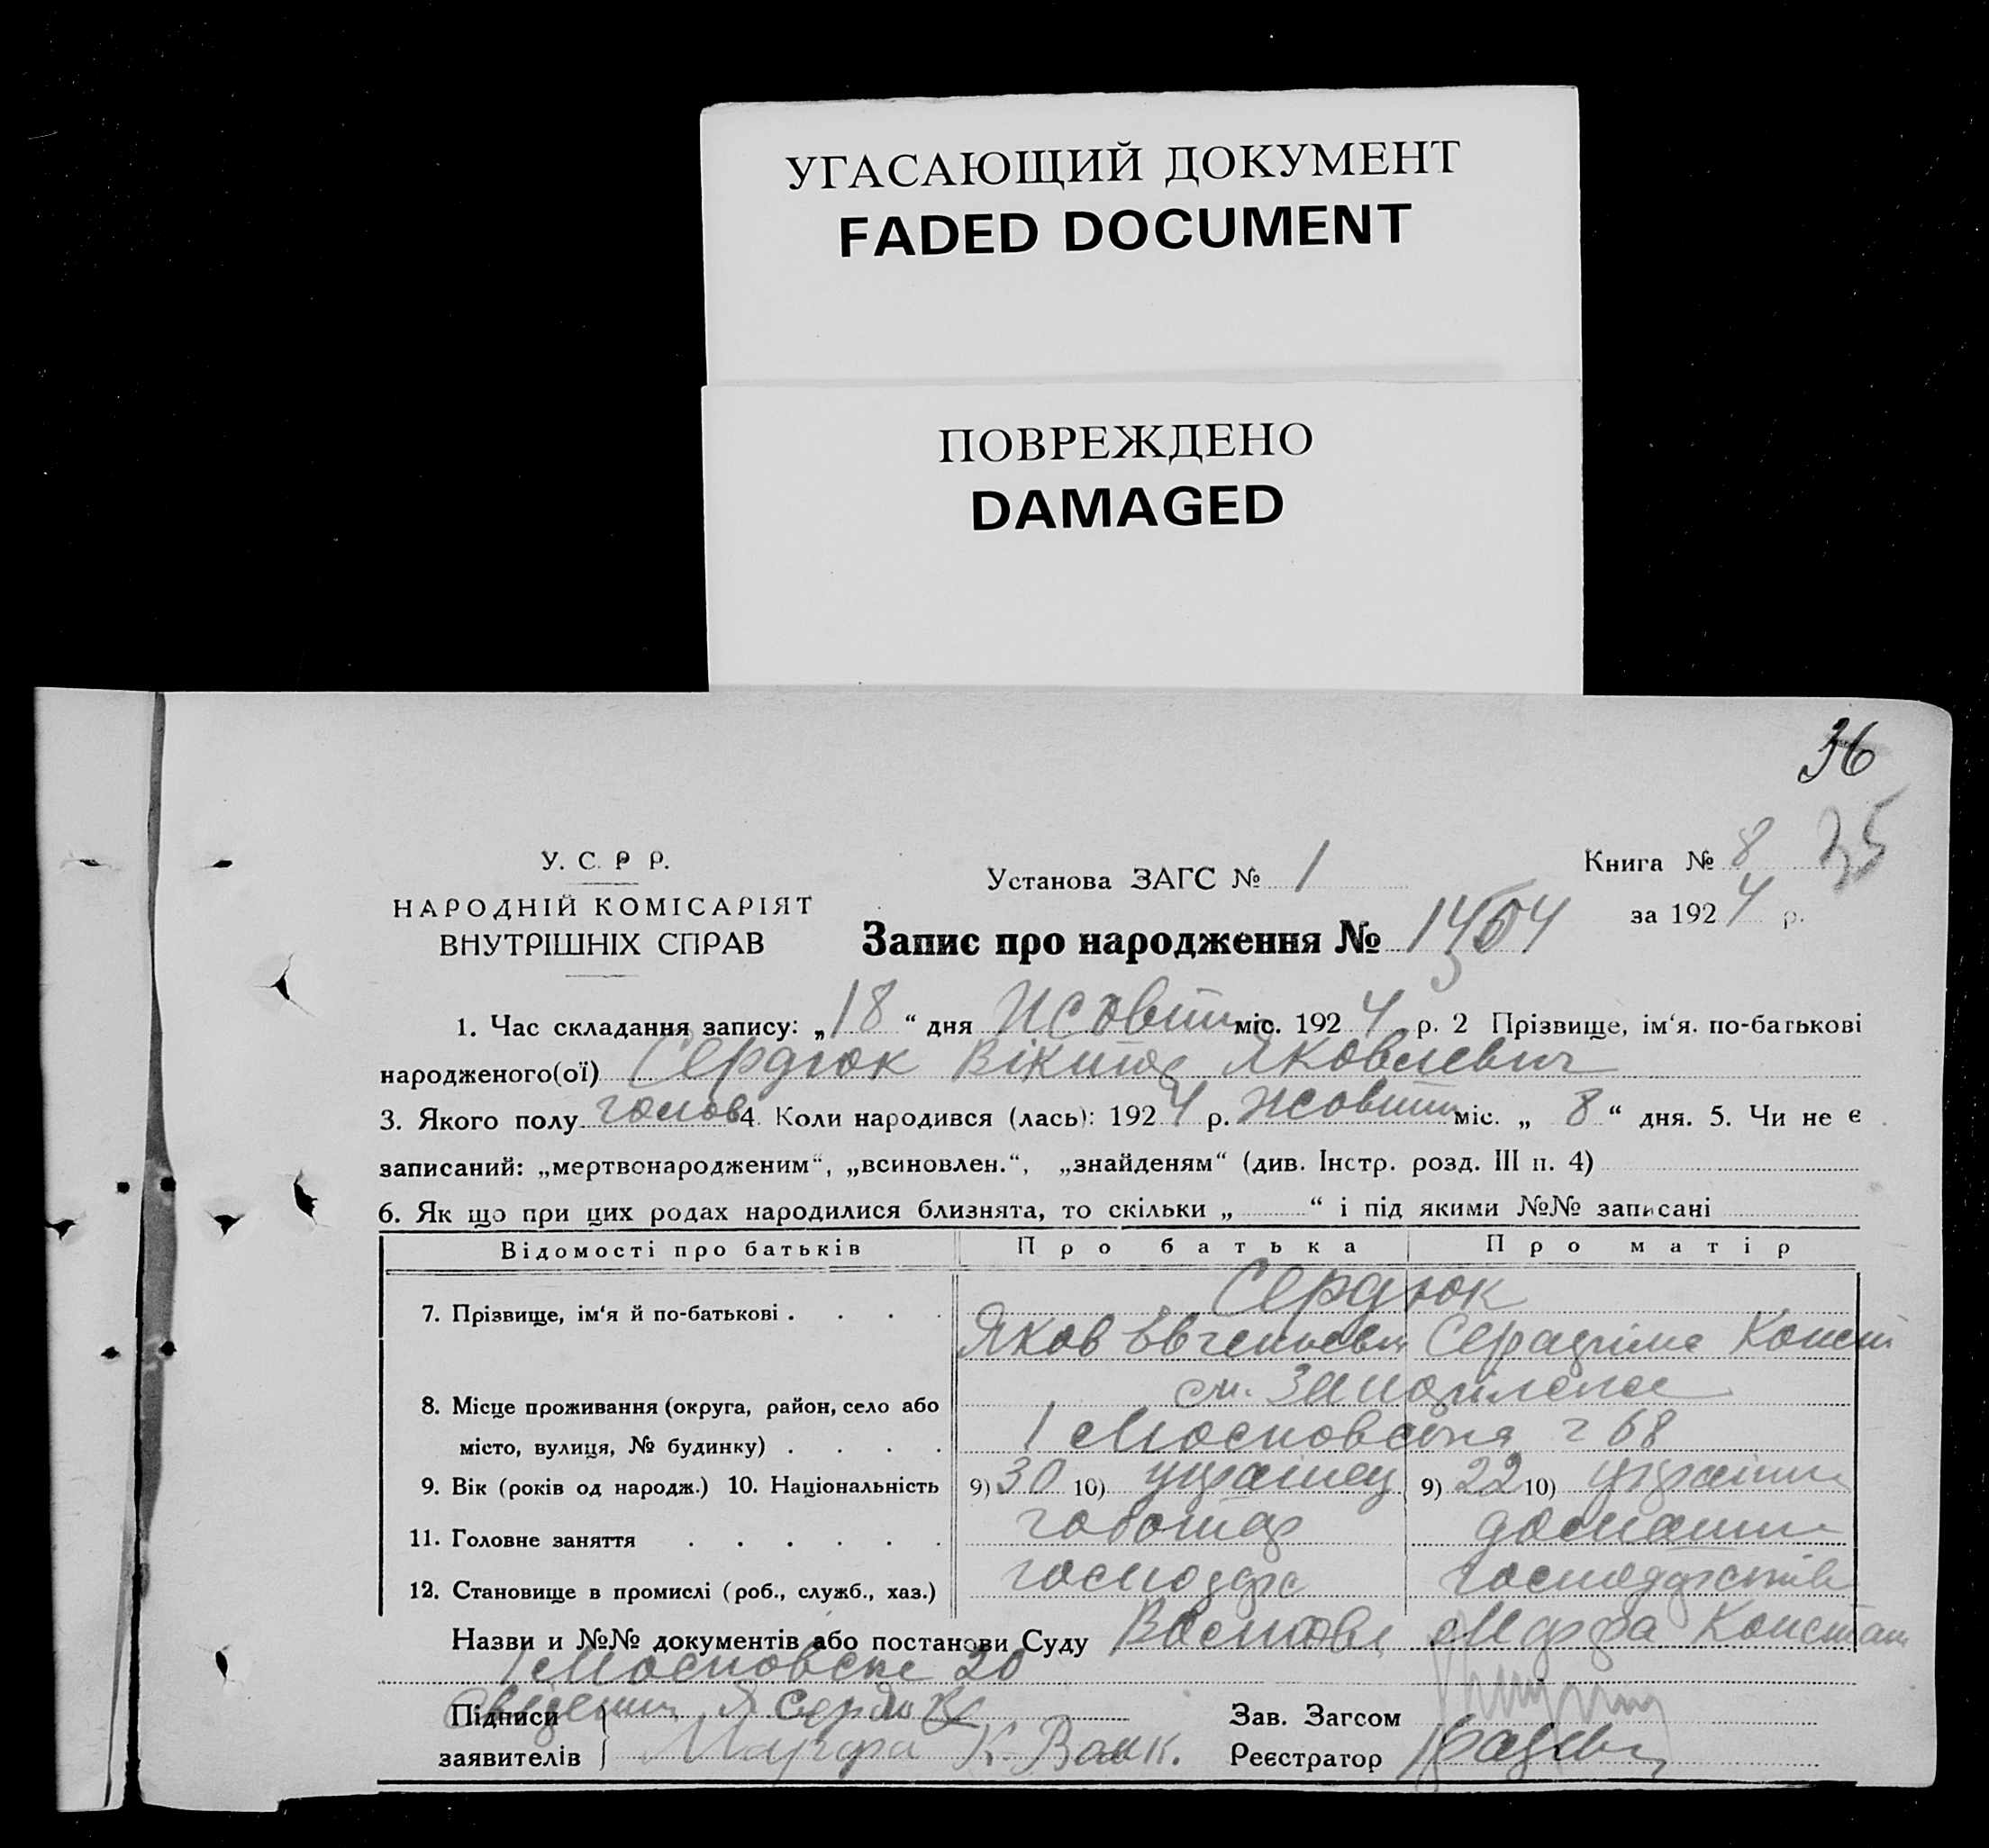 УГАСАЮЩИЙ ДОКУМЕНТ
FADED DOCUMENT
ПОВРЕЖДЕНО
DAMAGED
36
35
У. С. Р Р.
НАРОДНІЙ КОМІСАРІЯТ
ВНУТРІШНІХ СПРАВ
Установа ЗАГС № 1
Книга № 8
за 192 4 р.
Запис про народження №
1. Час складання запису: „ 18 “ дня Жовтн міс. 192 4 р. 2 Прізвище, ім‘я. по-батькові
народженого(ої) Сердюк Віктор Яковлевич
3. Якого полу чолов 4. Коли народився (лась): 192 4 р. Жовтн міс. „ 8 “ дня. 5. Чи не є
записаний: „мертвонародженим“, „всиновлен.“, „знайденям“ (див. Інстр. розд. III п. 4)
6. Як що при цих родах народилися близнята, то скільки „ “ і під якими №№ записані
Відомості про батьків Про батька Про матір
7. Прізвище, ім‘я й по-батькові . . . . Сердюк
Яков Серафима Конст
8. Місце проживання (округа, район, село або
місто, вулиця, № будинку) . . . . 1 68
9. Вік (років од народж.) 10. Національність 9) 30 10) українец 9) 22 10) україн
11. Головне заняття . . . . . . домашн
12. Становище в промислі (роб., служб., хаз.)
Назви и №№ документів або постанови Суду Конствн
20
Підписи заявителів Я Сердюк
Марфа К.
Зав. Загсом
Реєстратор